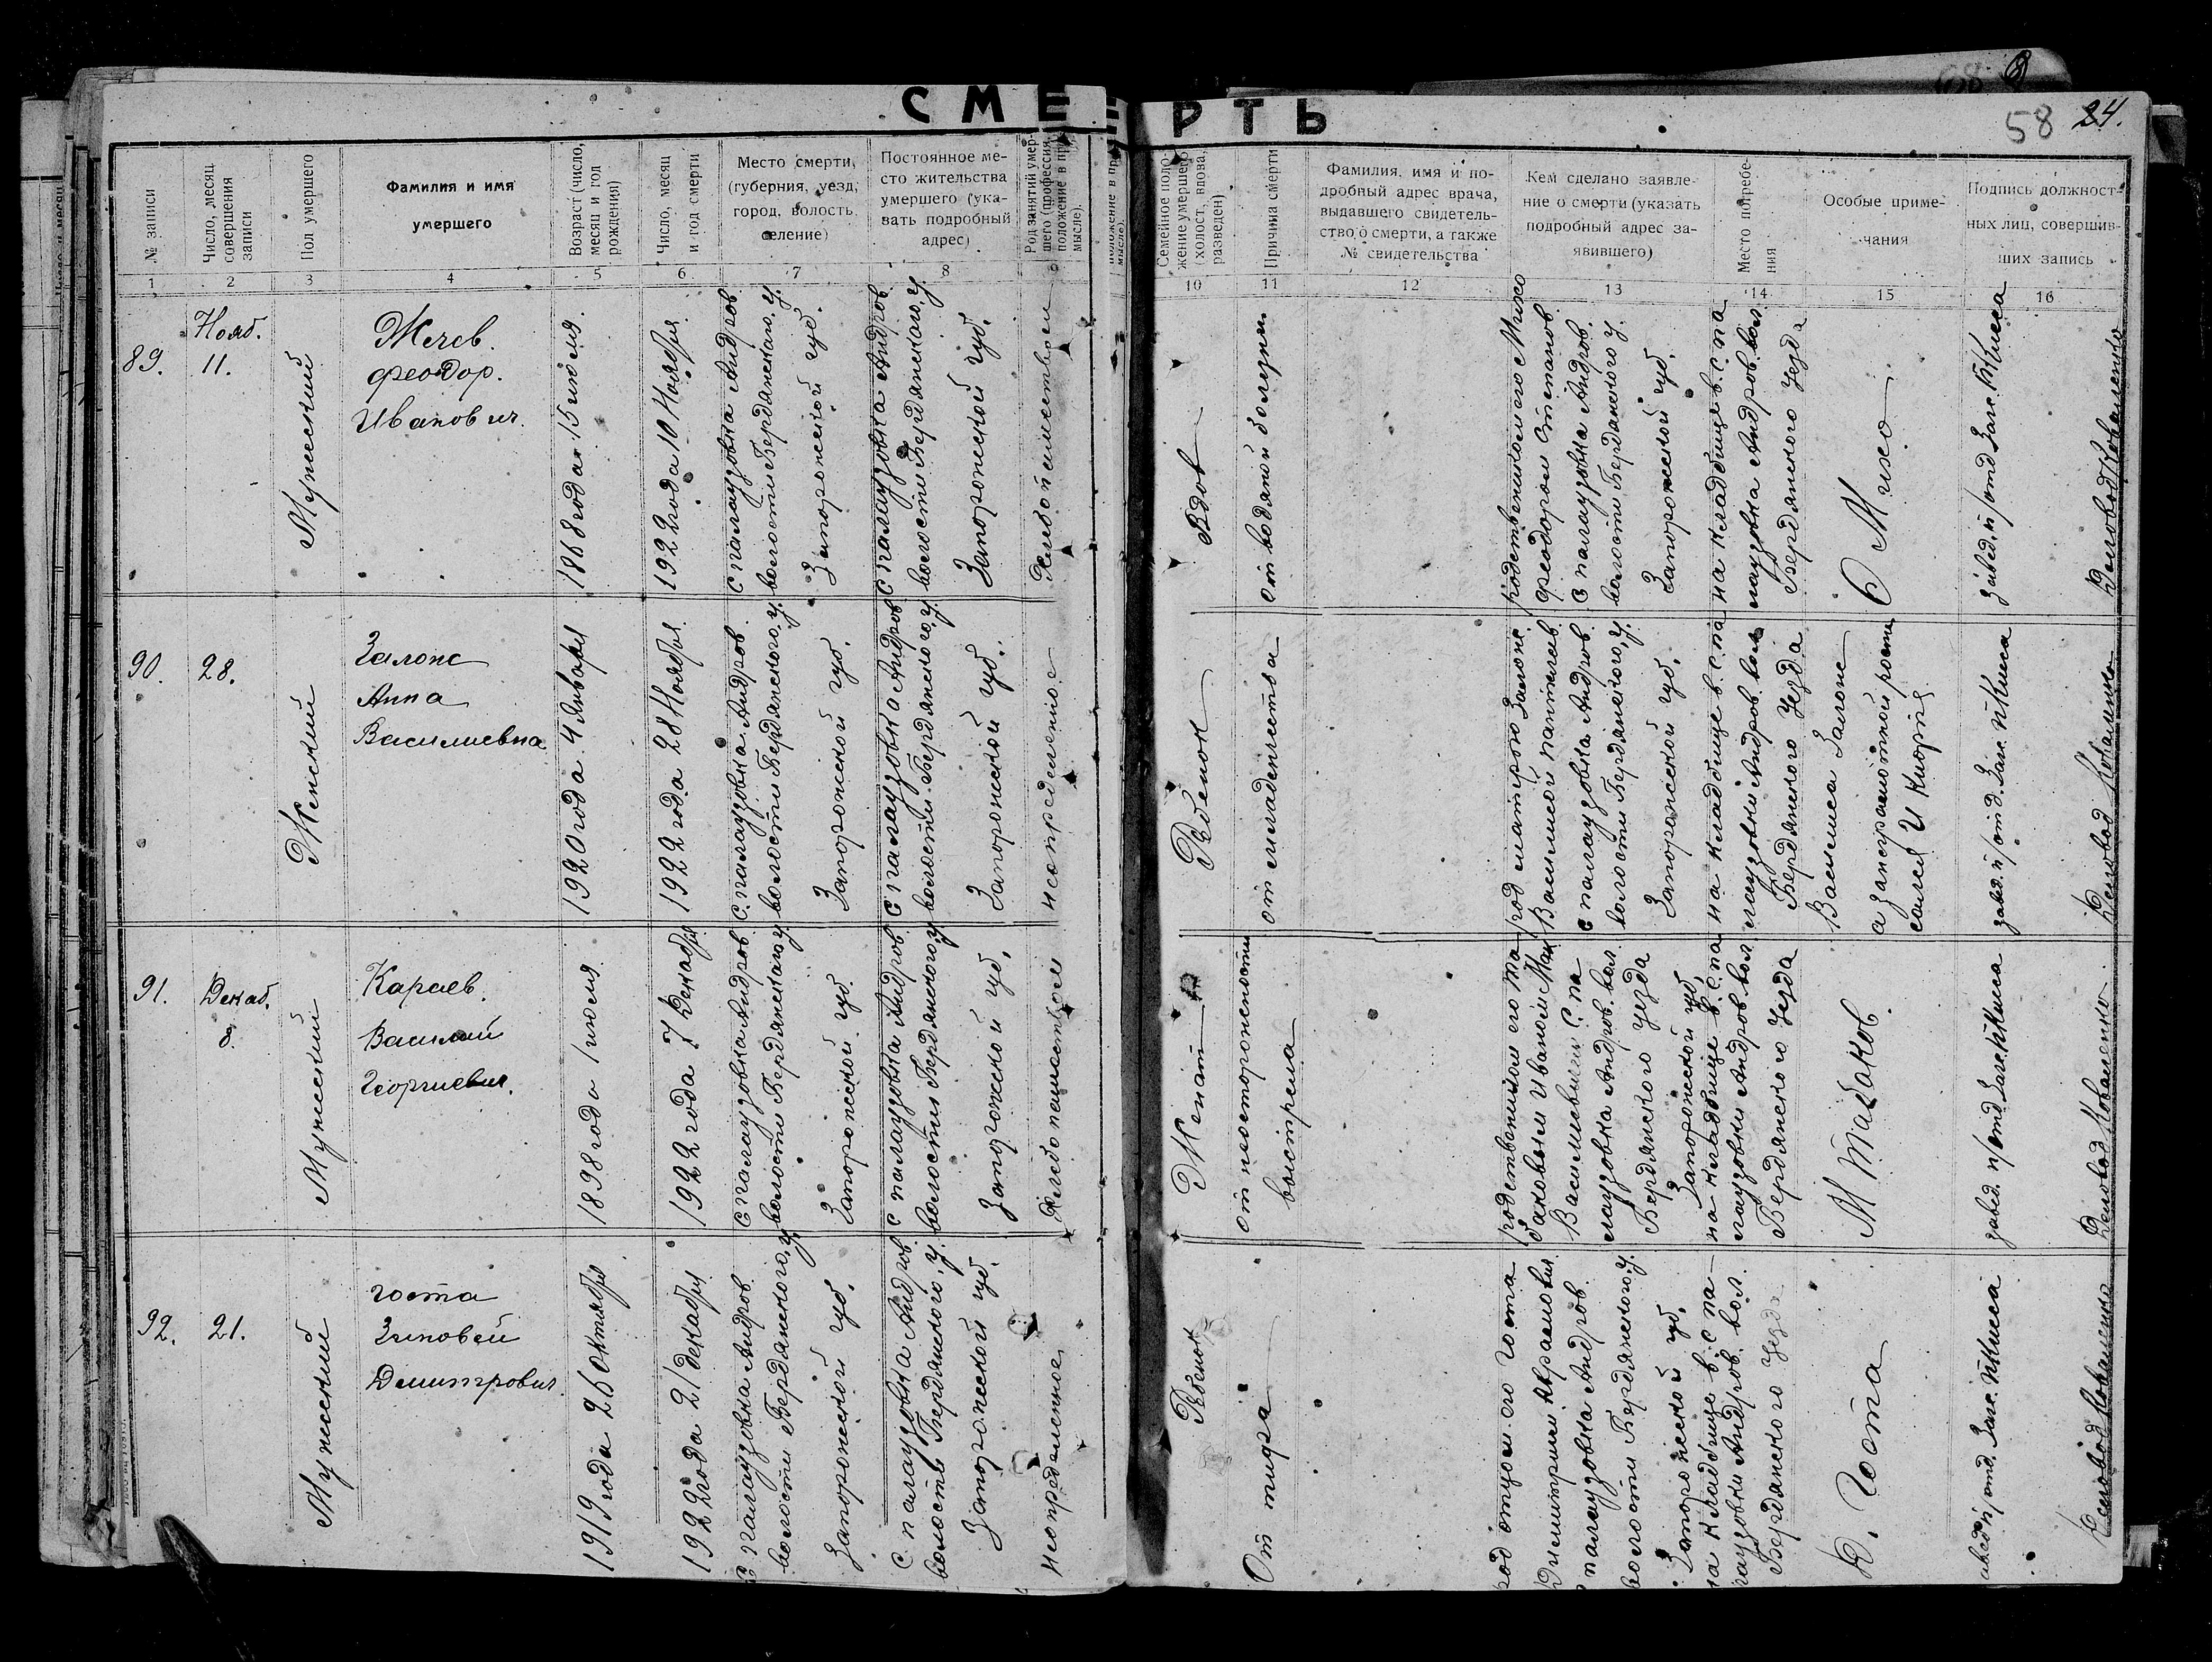 СМЕРТЬ
58 24.
№ записи
Число, месяц совершения записи
Пол умершего
Фамилия и имя
умершего
Возраст (число, месяц и год рождения)
Число, месяц и год смерти
Место смерти,
(губерния, уезд,
город, волость
селение)
Постоянное ме-
сто жительства
умершего (ука-
зать подробный
адрес)
Род занятий умер-
шего (профессия,
положение в про
мысле).
Семейное поло-
жение умершего
(холост, вдова,
разведен)
Причина смерти
Фамилия, имя и по-
дробный адрес врача,
выдавшего свидетель-
ство о смерти, а также
№ свидетельства
Кем сделано заявле-
ние о смерти (указать
подробный адрес за-
явившего)
Место погребе-
ния
Особые приме-
чания
Подпись должност-
ных лиц, совершив-
ших запись
1 2 3 4 5 6 7 8 9 10 11 12 13 14 15 16
89.
Нояб.
11.
Мужеский
Жечев.
феодор.
Иванович.
1868 года 15 июля.
1922 года 10 Ноября.
с палаузовка Андров.
волости Бердянского, у.
Запорожской губ.
с палаузовка Андров
волости Бердянского, у.
Запорожской губ.
Вдов
от водяной болезни
родственником его Михо
феодором Степанов.
с палаузовка Андров.
волости Бердянского у.
Запорожской губ.
на кладбище в с. па
лаузовка Андров. вол.
Бердянского Уезда
Михо
Деловод Коваленко
90.
28.
Женский
Залонс
Анна
Василиевна
1920 года 4 Января
1922 года 28 Ноября
с. палаузовка Андров.
волости Бердянского, у.
Запорожской губ.
с палаузовка Андров
волости Бердянского, у
Запорожской губ.
неопределенное
Ребенок
от младенчества
с палаузовка Андров.
волости Бердянского, у.
Запорожской губ.
на кладбище в с. па
лаузовки Андров. вол
Бердянского Уезда
Деловод Коваленко
91.
Декаб.
8.
Мужеский
Караев.
Василий
Георгиевич.
1898 года 1 июля
1922 года 7 Декабря
с палаузовка Андров.
волости Бердянского у
Запорожской губ.
с палаузовка Андров
волости Бердянского у
Запорожской губ.
Хлебопашеством
Женат
от неосторожности
выстрела
родственником его Та
баковым Иваном
Василевичем с. па
лаузовка Андров. вол.
Бердянского уезда
Запорожской губ.
на кладбище в с. па
лаузовки Андров. вол
Бердянского Уезда
М Табаков.
Деловод Коваленко
92.
21.
Мужеский
госта
Зиновей
Димитрович.
1919 года 26 октября
1922 года 21 декабря
с палаузовка Андров.
волости Бердянского, у
Запорожской губ.
с. палаузовка Андров.
волости Бердянского, у.
Запорожской губ.
неопределенное
Ребенок
От тифа
род отцом его госта
Димитрием Аврамович
палаузовка Андров.
волости Бердянского, у.
Запорожской губ.
на кладбище в с па-
лаузовки Андров. вол.
Бердянского Уезда
Д. Госта
Деловод Коваленко